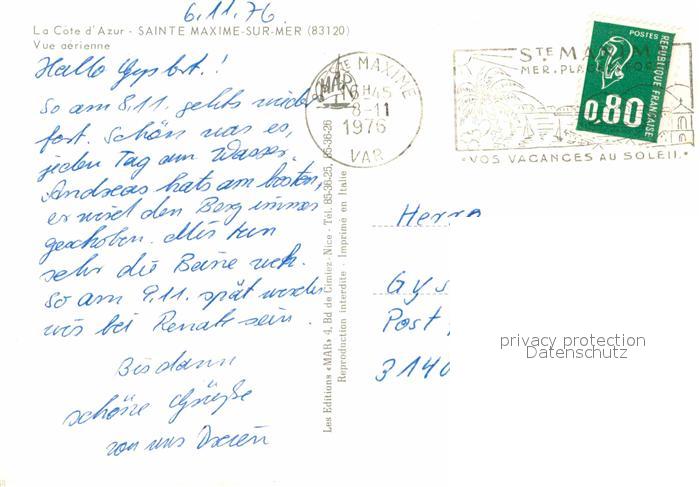 6.11.76
La Côte d'Azur - SAINTE MAXIME-SUR-MER (83120)
Vue aérienne
Hallo
So am 8.11. gehts wieder
fort. Schön war es,
jeden Tag am Wasser.
Andreas hats am besten,
er wird den Berg immer
geschoben. Mir tun
sehr die Beine weh.
So am 9.11. spät werden
wir bei Renate sein.
Bis dann
schöne Grüße
von uns Dreien
Les Editions «MAR» 4, Bd de Cimiez - Nice - Tél. 85-36-25, 85-36-26
Reproduction interdite - Imprimé en Italie
STE MAXIME
MAR
16H45
8-11
1976
VAR
STE MAXIM
MER. PLA
VOS VACANCES AU SOLEIL
POSTES
RÉPUBLIQUE FRANÇAISE
0,80
Herrn
Gys
Post
3140
privacy protection
Datenschutz